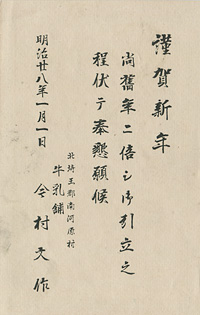 謹賀新年
尚舊年ニ倍シ御引立之
程伏テ奉懇願候
明治廿八年一月一日
北埼玉郡南河原村
牛乳舗
今村文作